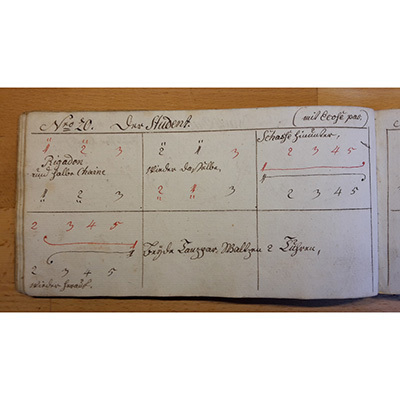 Nro 20. Der Student. (mit Ecose pas.)
1 2 3
Rigadon
und halbe Chaine
1 2 3
2 1 3
wieder dasselbe
2 1 3
Schasse hinunter,
2 3 4 5
2 3 4 5
2 3 4 5
2 3 4 5
wieder herauf.
Beyde Tanzpar. Walzen 2 Tuhren,